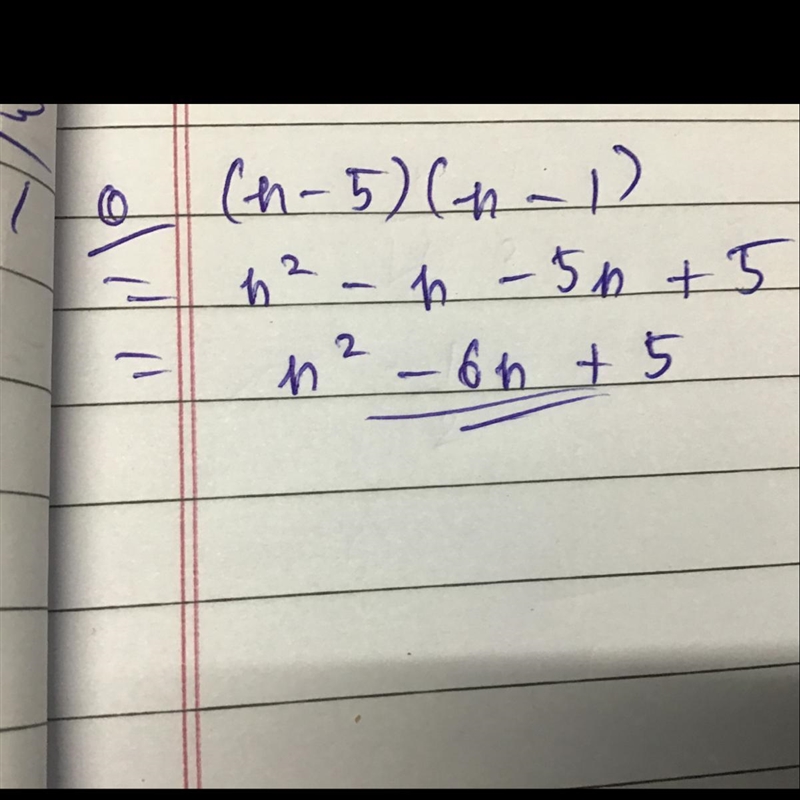 ① (n-5)(n-1)
= n² - n - 5n + 5
= n² - 6n + 5